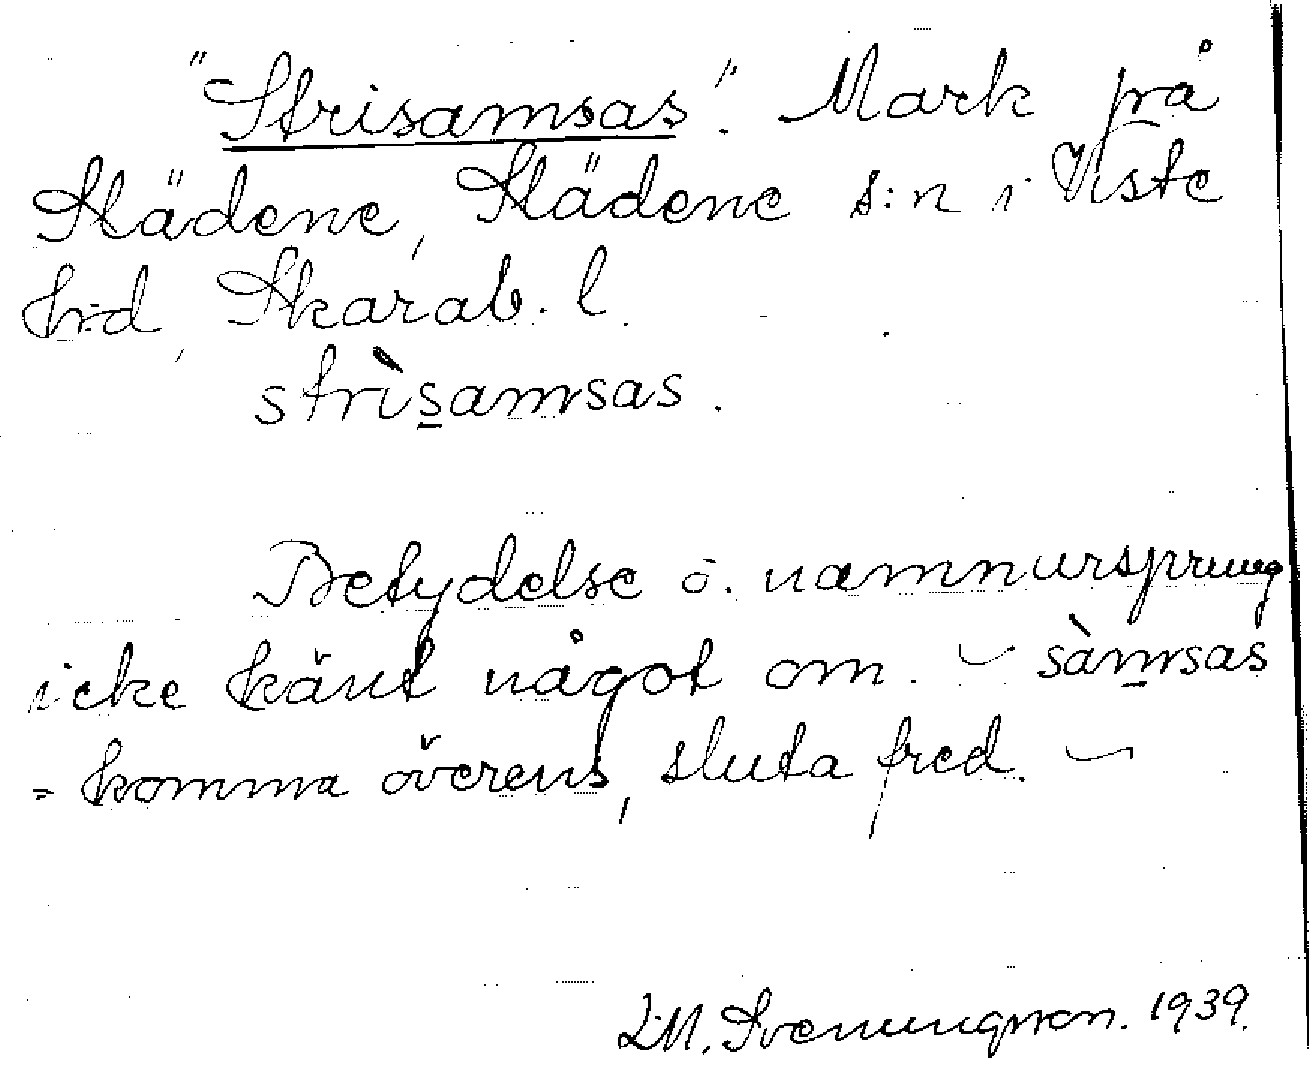 "Strisamsas". Mark på
Slädene, Slädene s:n i Viste
hrd, Skarab. l.
strìs̲amsas.
Betydelse o. namnursprung
icke känt något om. – sàm̲sas
= komma överens, sluta fred. –
L.M. Svenungsson. 1939.